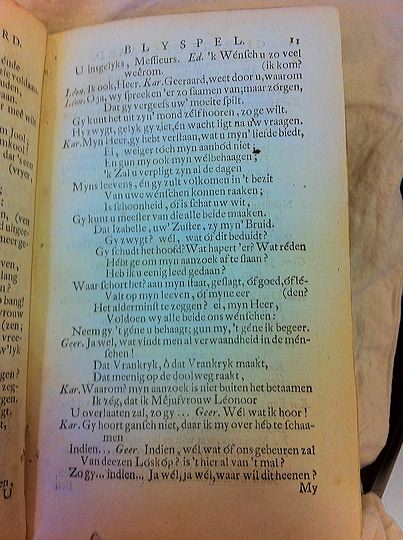 BLYSPEL. 11
U insgelyks, Messieurs. Ed. 'k Wénsch u zo veel
weêrom. (ik kom?
Léon. Ik ook, Heer. Kar. Geeraard, weet door u, waarom
Léon. O ja, wy spreeken 'er zo saamen van; maar zórgen,
Dat gy vergeefs uw' moeite spilt.
Gy kunt het uit zyn' mond zélf hooren, zo ge wilt.
Hy zwygt, gelyk gy ziet, én wacht ligt na uw vraagen.
Kar. Myn Heer, gy hebt verstaan, wat u myn' liefde biedt,
Ei, weiger tóch myn aanbód niet;
En gun my ook myn wélbehaagen;
'k Zal u verpligt zyn al de dagen
Myns leevens, én gy zult volkomen in 't bezit
Van uwe wénschen konnen raaken;
Is schoonheid, óf is schat uw wit,
Gy kunt u meester van die alle beide maaken.
Dat Izabelle, uw' Zuster, zy myn' Bruid.
Gy zwygt? wél, wat óf dit beduidt?
Gy schudt het hoofd? Wat hapert 'er? Wat réden
Hébt ge om myn aanzoek af te slaan?
Heb ik u eenig leed gedaan?
Waar schort het? aan myn staat, geslagt, óf goed, óf lé-
Valt op myn leeven, óf myne eer (den?
Het aldermínst te zeggen? ei, myn Heer,
Voldoen wy alle beide ons wénschen:
Neem gy 't géne u behaagt; gun my, 't géne ik begeer.
Geer. Ja wel, wat vindt men al verwaandheid in de mén-
schen!
Dat Vrankryk, ô dat Vrankryk maakt,
Dat meenig op de doolweg raakt,
Kar. Waarom? myn aanzoek is niet buiten het betaamen
Ik zég, dat ik Méjufvrouw Léonoor
U overlaaten zal, zo gy ... Geer. Wél wat ik hoor!
Kar. Gy hoort gansch niet, daar ik my over héb te schaa-
men
Indien... Geer. Indien, wél, wat óf ons gebeuren zal
Van deezen Lóskóp? is 't hier al van 't mal?
Zo gy... indien... Ja wél, ja wél, waar wil dit heenen?
My